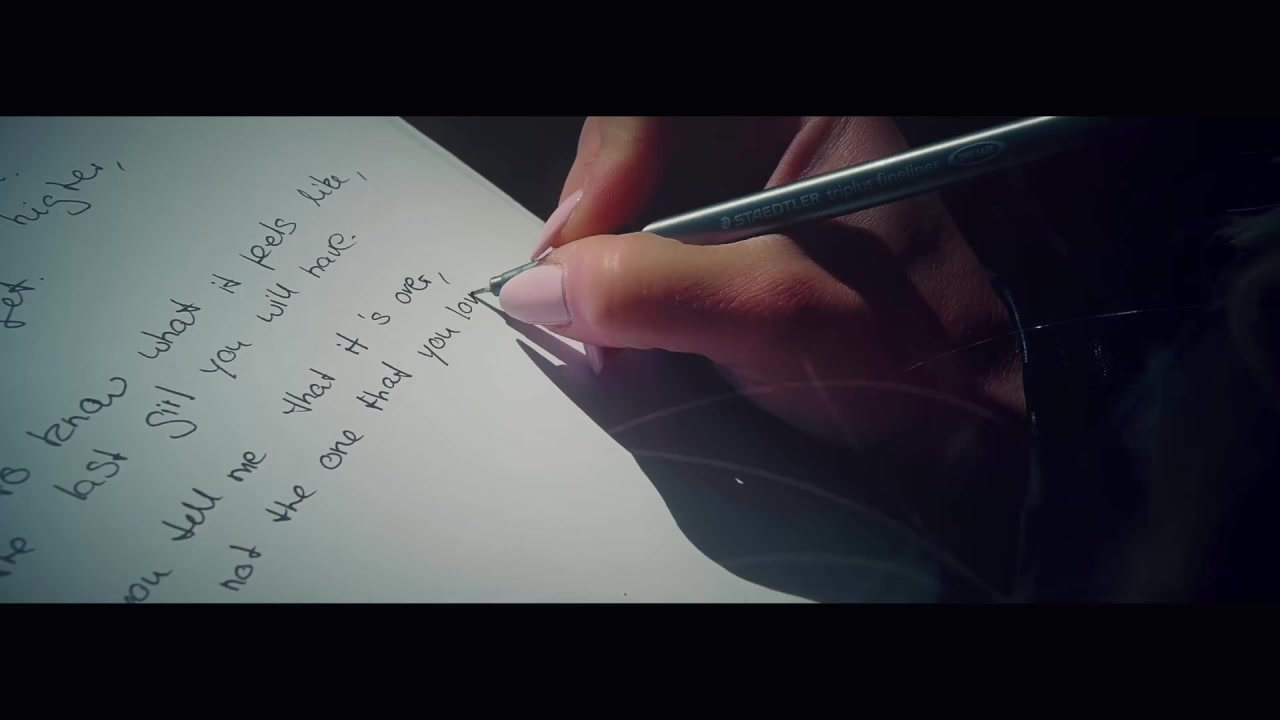 higher,
yet.
to know what it feels like,
last girl you will have.
you tell me that it's over,
not the one that you lov
STAEDTLER triplus fineliner